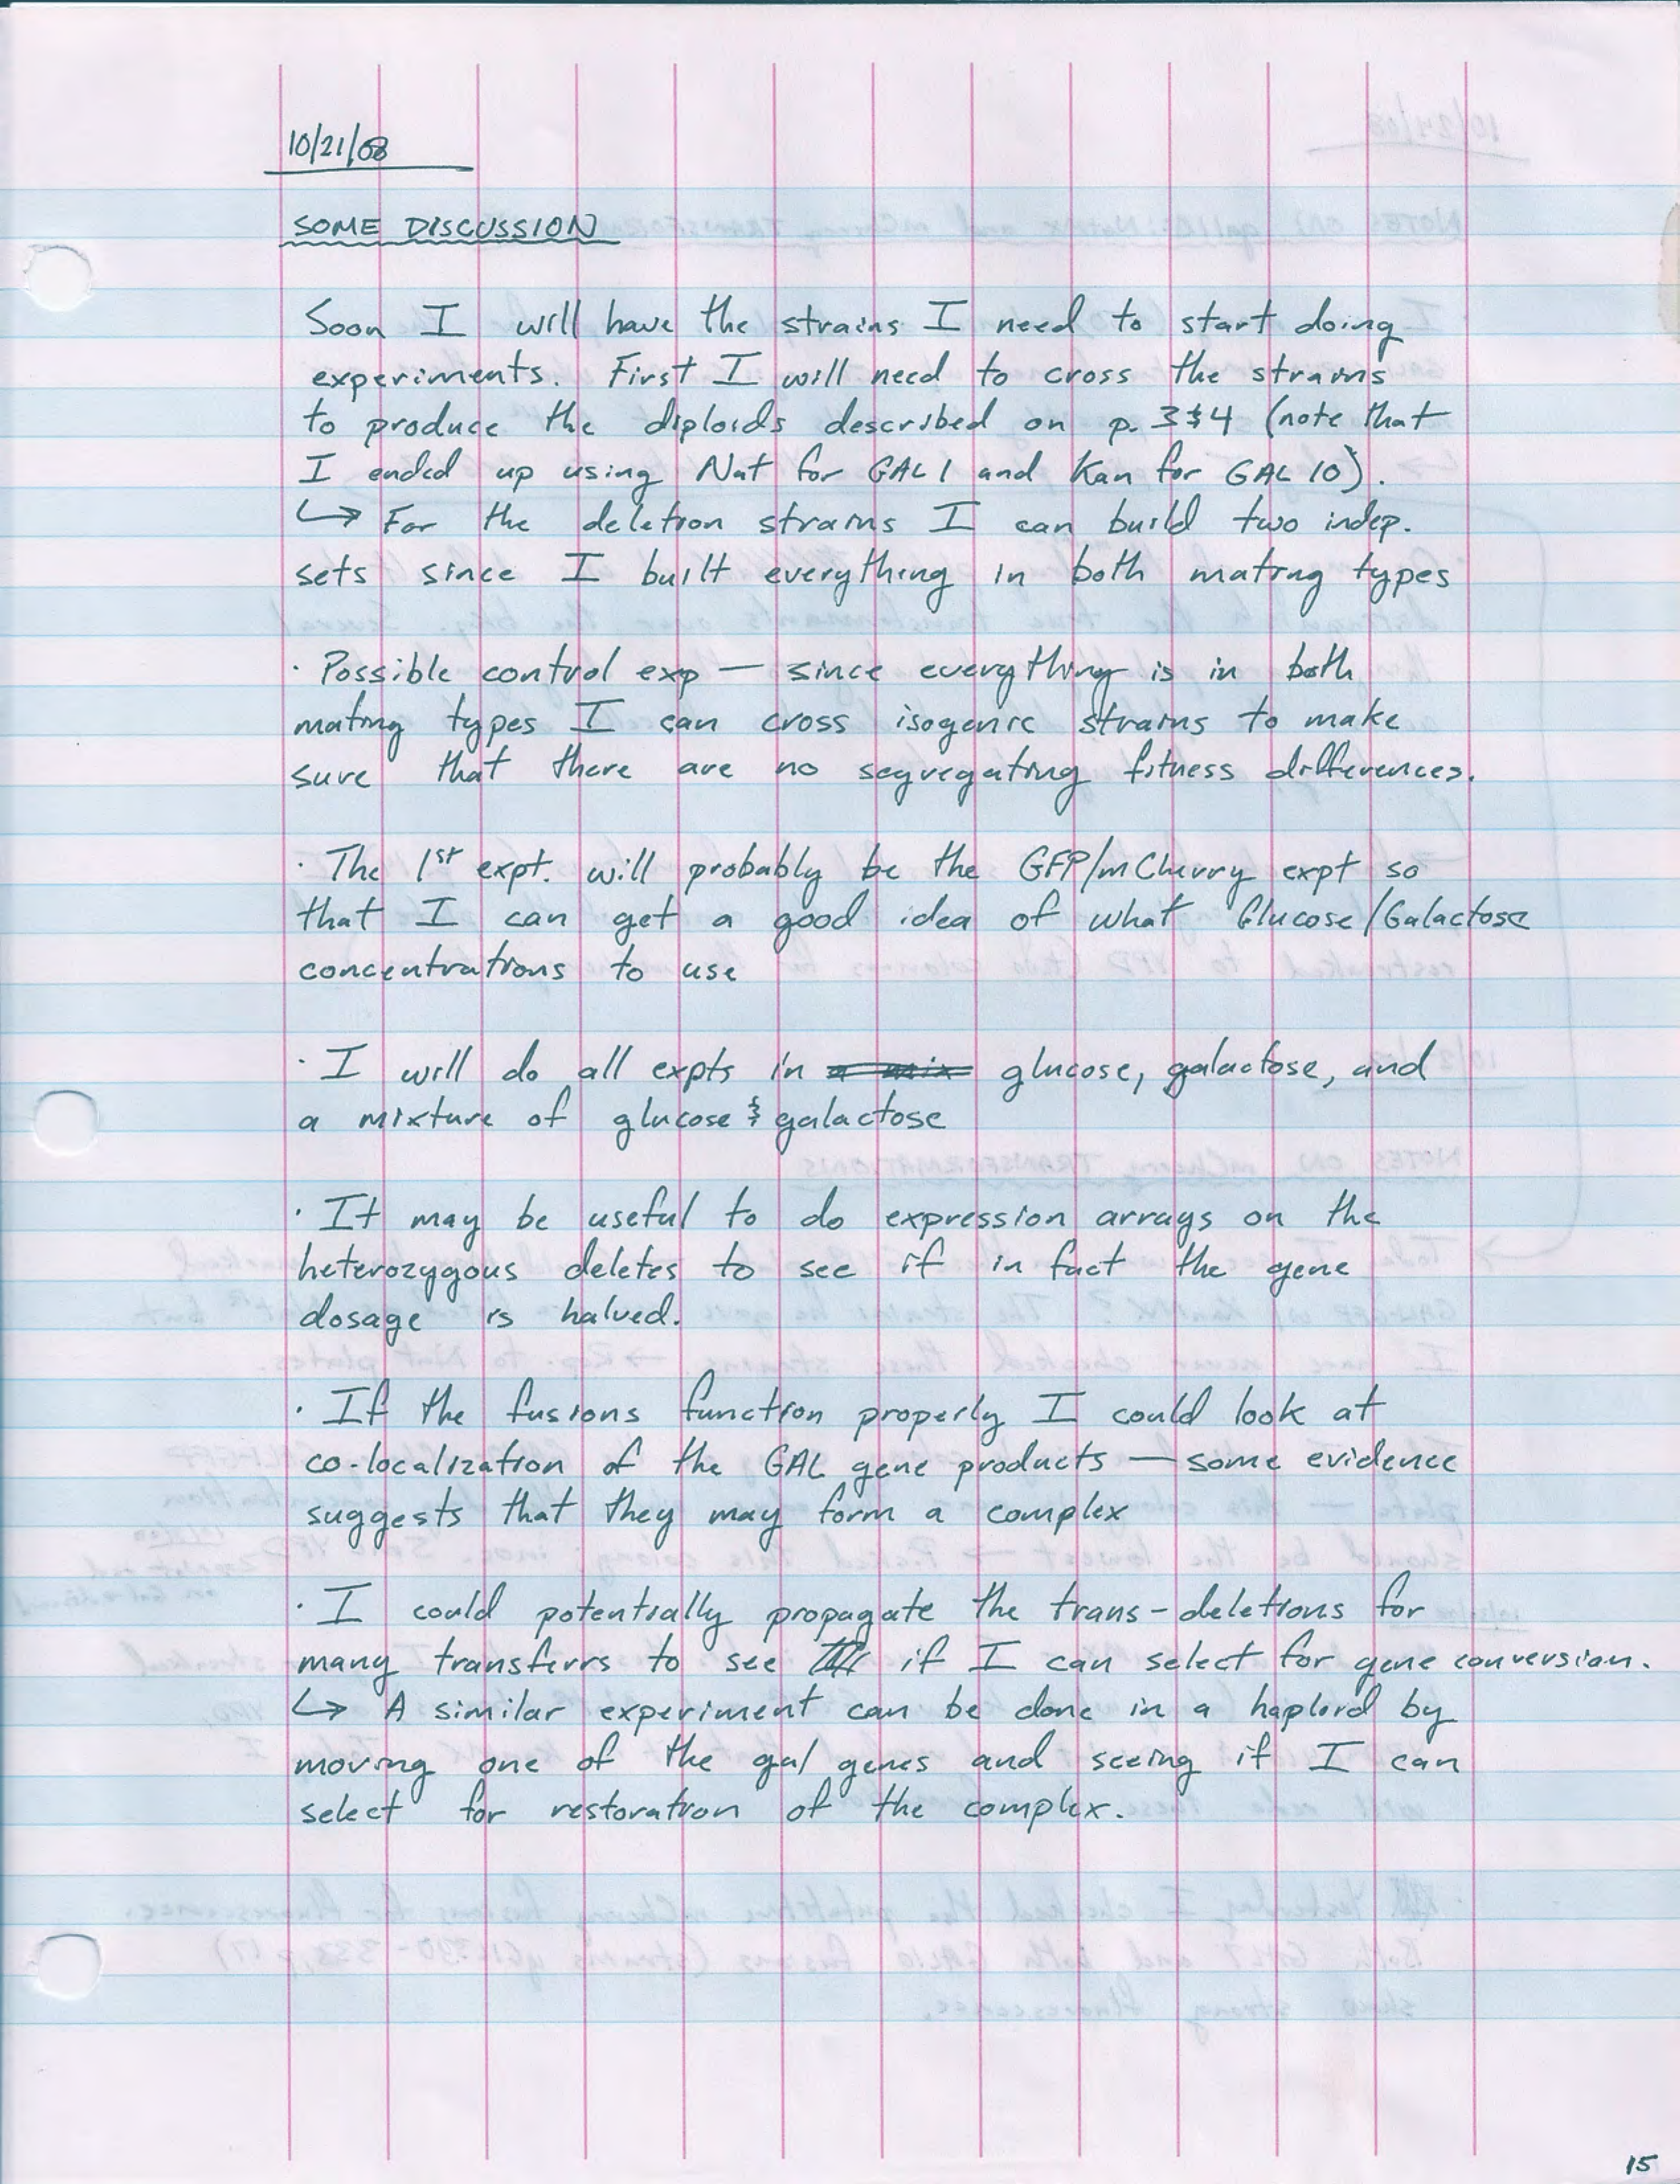 10/21/08
SOME DISCUSSION
Soon I will have the strains I need to start doing
experiments. First I will need to cross the strains
to produce the diploids described on p. 3&4 (note that
I ended up using Nat for GAL1 and Kan for GAL10).
↳ For the deletion strains I can build two indep.
sets since I built everything in both mating types
· Possible control exp — since everything is in both
mating types I can cross isogenic strains to make
sure that there are no segregating fitness differences.
· The 1st expt. will probably be the GFP/mCherry expt so
that I can get a good idea of what Glucose/Galactose
concentrations to use
· I will do all expts in a mix glucose, galactose, and
a mixture of glucose & galactose
· It may be useful to do expression arrays on the
heterozygous deletes to see if in fact the gene
dosage is halved.
· If the fusions function properly I could look at
co-localization of the GAL gene products — some evidence
suggests that they may form a complex
· I could potentially propagate the trans-deletions for
many transfers to see if I can select for gene conversion.
↳ A similar experiment can be done in a haploid by
moving one of the gal genes and seeing if I can
select for restoration of the complex.
15